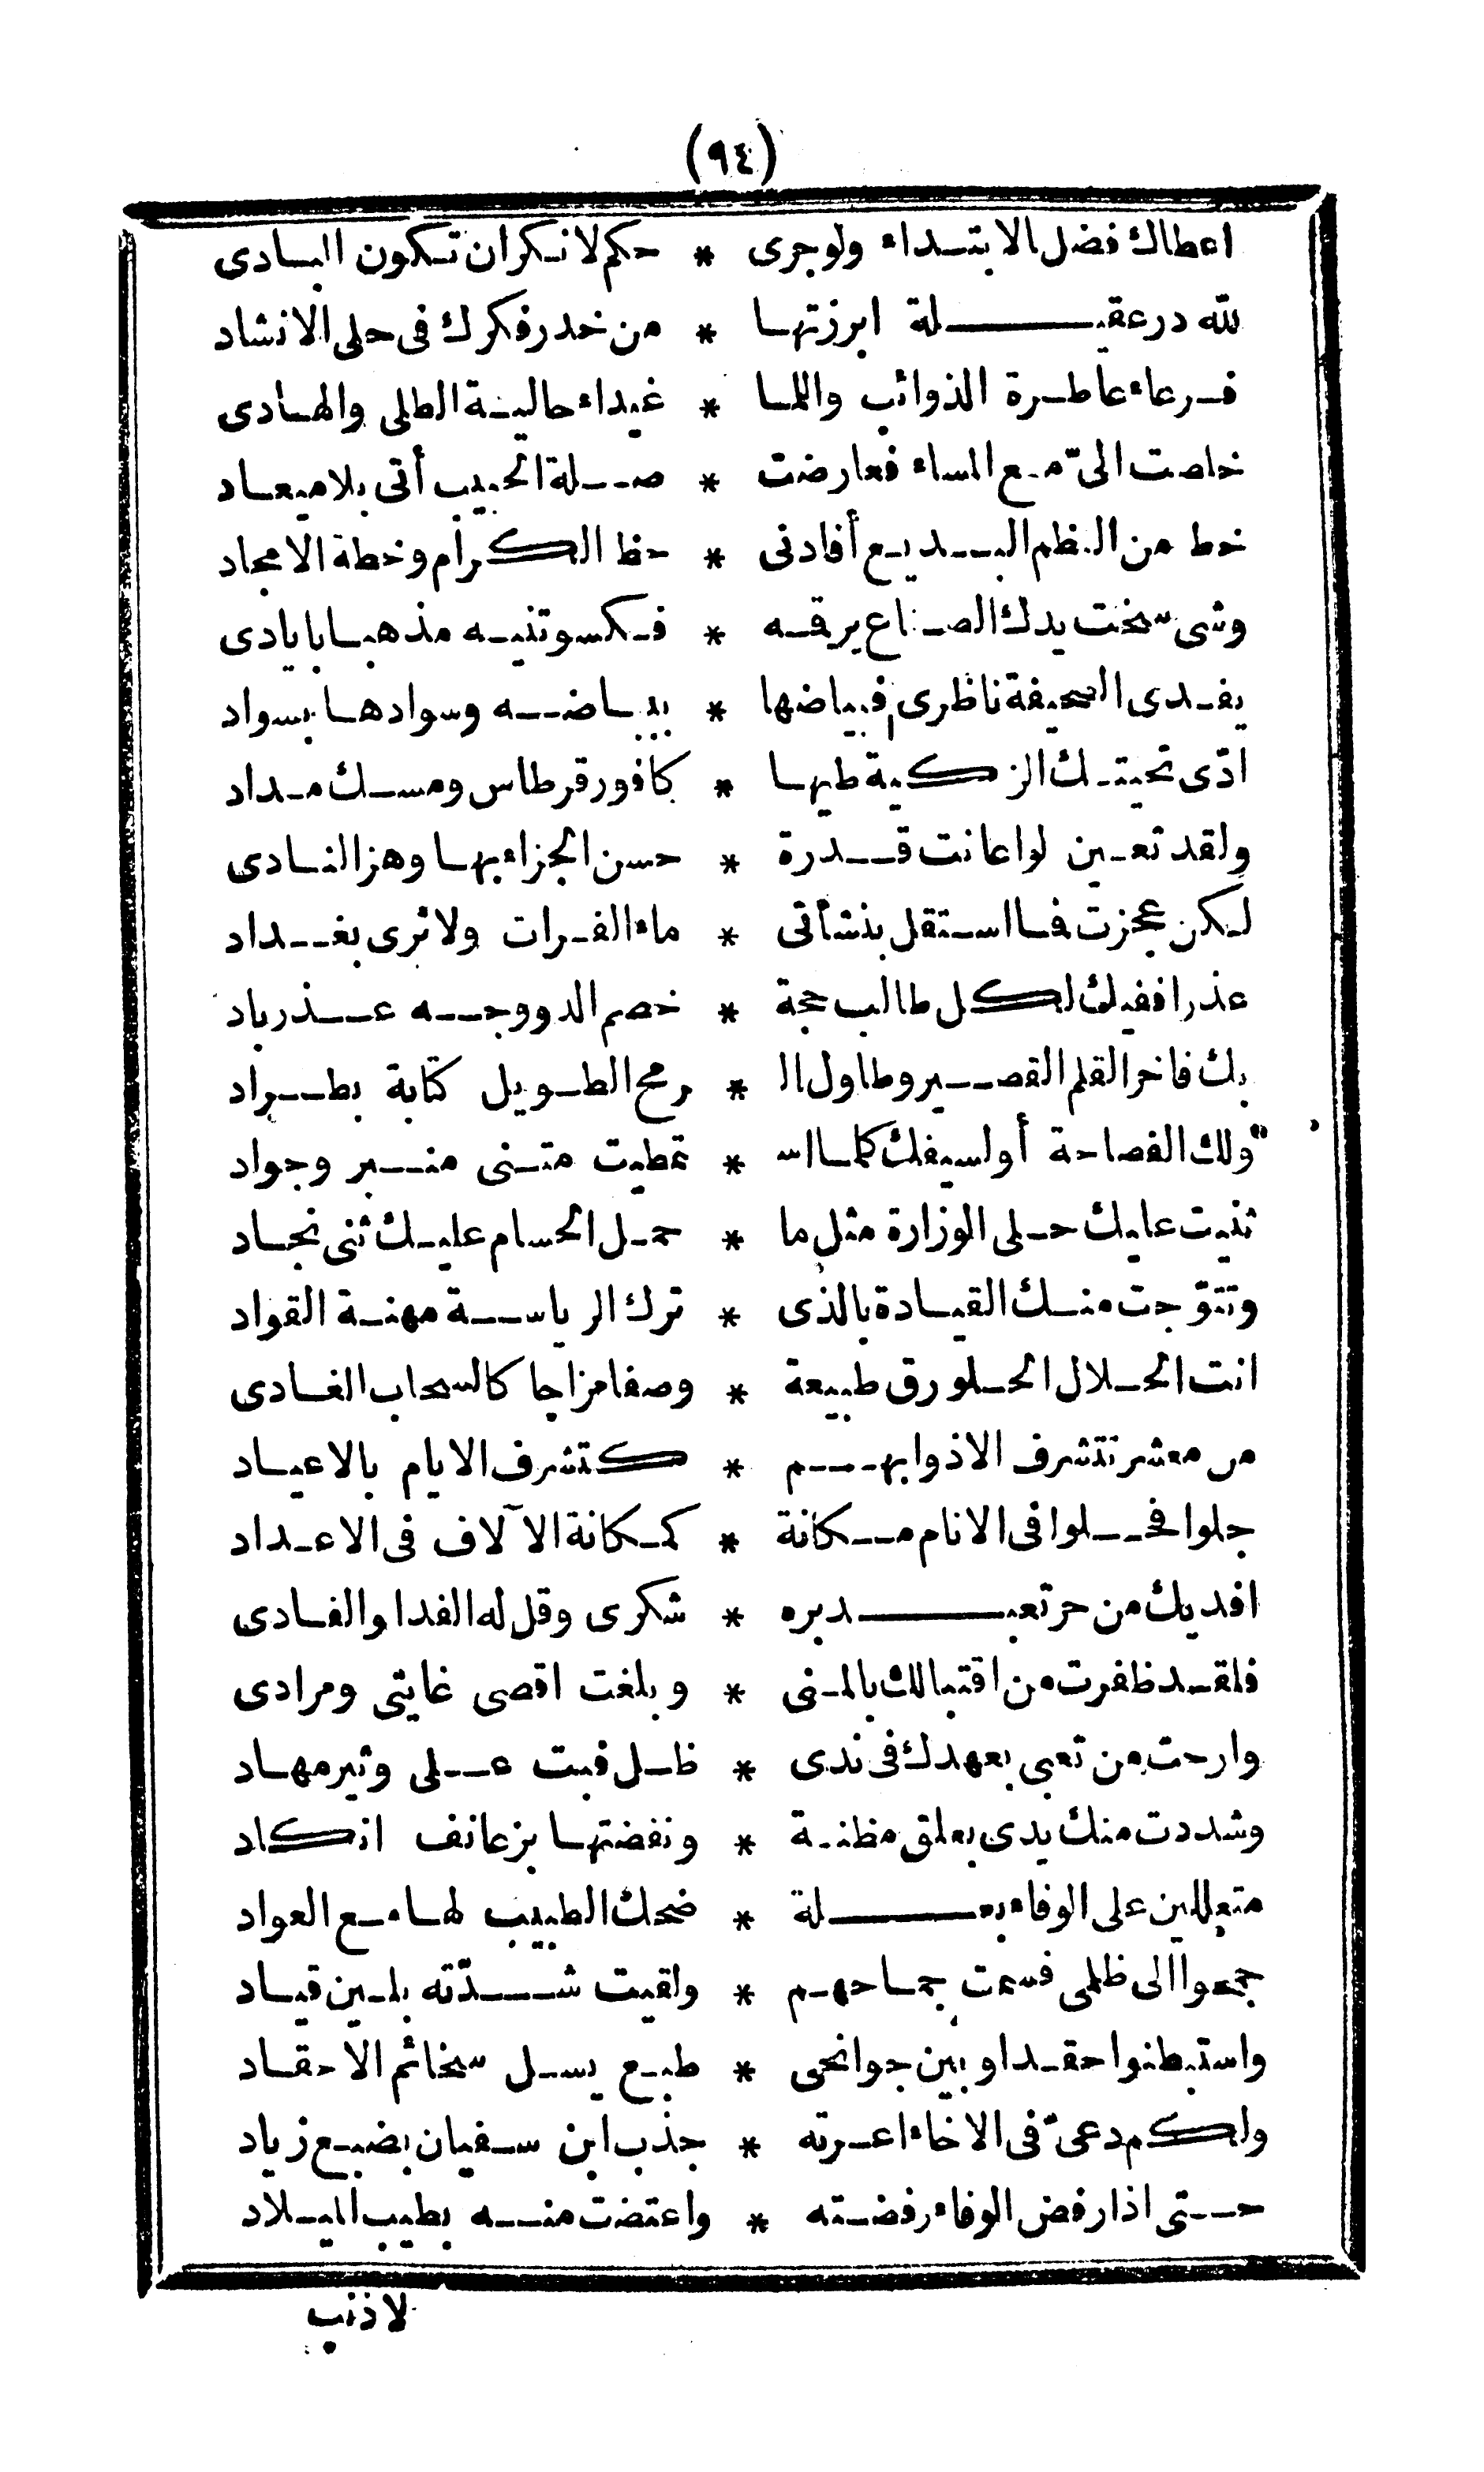 (٩٤)
اعطاك فضل الابتداء ولوجرى * حكم لانكران تكون البادى
لله در عقيلة ابرزتها * من خدر فكرك فى حلى الانشاد
فرعاء عاطرة الذوائب واللما * غيداء حالية الطلى والهادى
خاصت الىّ مع المساء فعارضت * صلة الحبيب أتى بلا ميعاد
خط من النظم البديع أفادنى * حظ الكرام وخطة الامجاد
وشى سخت يدك الصناع برقه * فكسوتنيه مذهبا بايادى
يفدى الصحيفة ناظرى فبياضها * ببياضه وسوادها بسواد
ادّى تحيتك الزكية طيها * كافور قرطاس ومسك مداد
ولقد تعين لو اعانت قدرة * حسن الجزاء بها وهز النادى
لكن عجزت فما استقل بنشأتى * ماء الفرات ولا ثرى بغداد
عذرا ففيك لكل طالب حجة * خصم الد ووجه عذر باد
بك فاخر القلم القصير وطاول ال * رمح الطويل كتابة بطراد
ولك الفصاحة أو لسيفك كلما اس * تمطيت متنى منبر وجواد
ثنيت عليك حلى الوزارة مثل ما * حمل الحسام عليك ثنى نجاد
وتتوّجت منك القيادة بالذى * ترك الرياسة مهنة القواد
انت الحلال الحلو رق طبيعة * وصفا مزاجا كالسحاب الغادى
من معشر تتشرف الاذوا بهم * كتشرف الايام بالاعياد
جلوا فحلوا فى الانام مكانة * كمكانة الآلاف فى الاعداد
افديك من حر تعبد بره * شكرى وقل له الفدا والفادى
فلقد ظفرت من اقتبالك بالمنى * وبلغت اقصى غايتى ومرادى
وارحت من تعبى بعهدك فى ندى * ظل فبت على وثير مهاد
وشددت منك يدى بعلق مظنة * ونفضتها بزعانف انكاد
متعللين على الوفاء بعلة * ضحك الطبيب لها مع العواد
جمعوا الى ظلمى فسمت جماحهم * ولقيت شدّته بلين قياد
واستبطنوا حقدا وبين جوانحى * طبع يسل سخائم الاحقاد
ولكم دعىّ فى الاخاء اعرته * جذب ابن سفيان بضبع زياد
حتى اذا رفض الوفاء رفضته * واعتضت منه بطيب الميلاد
لاذنب